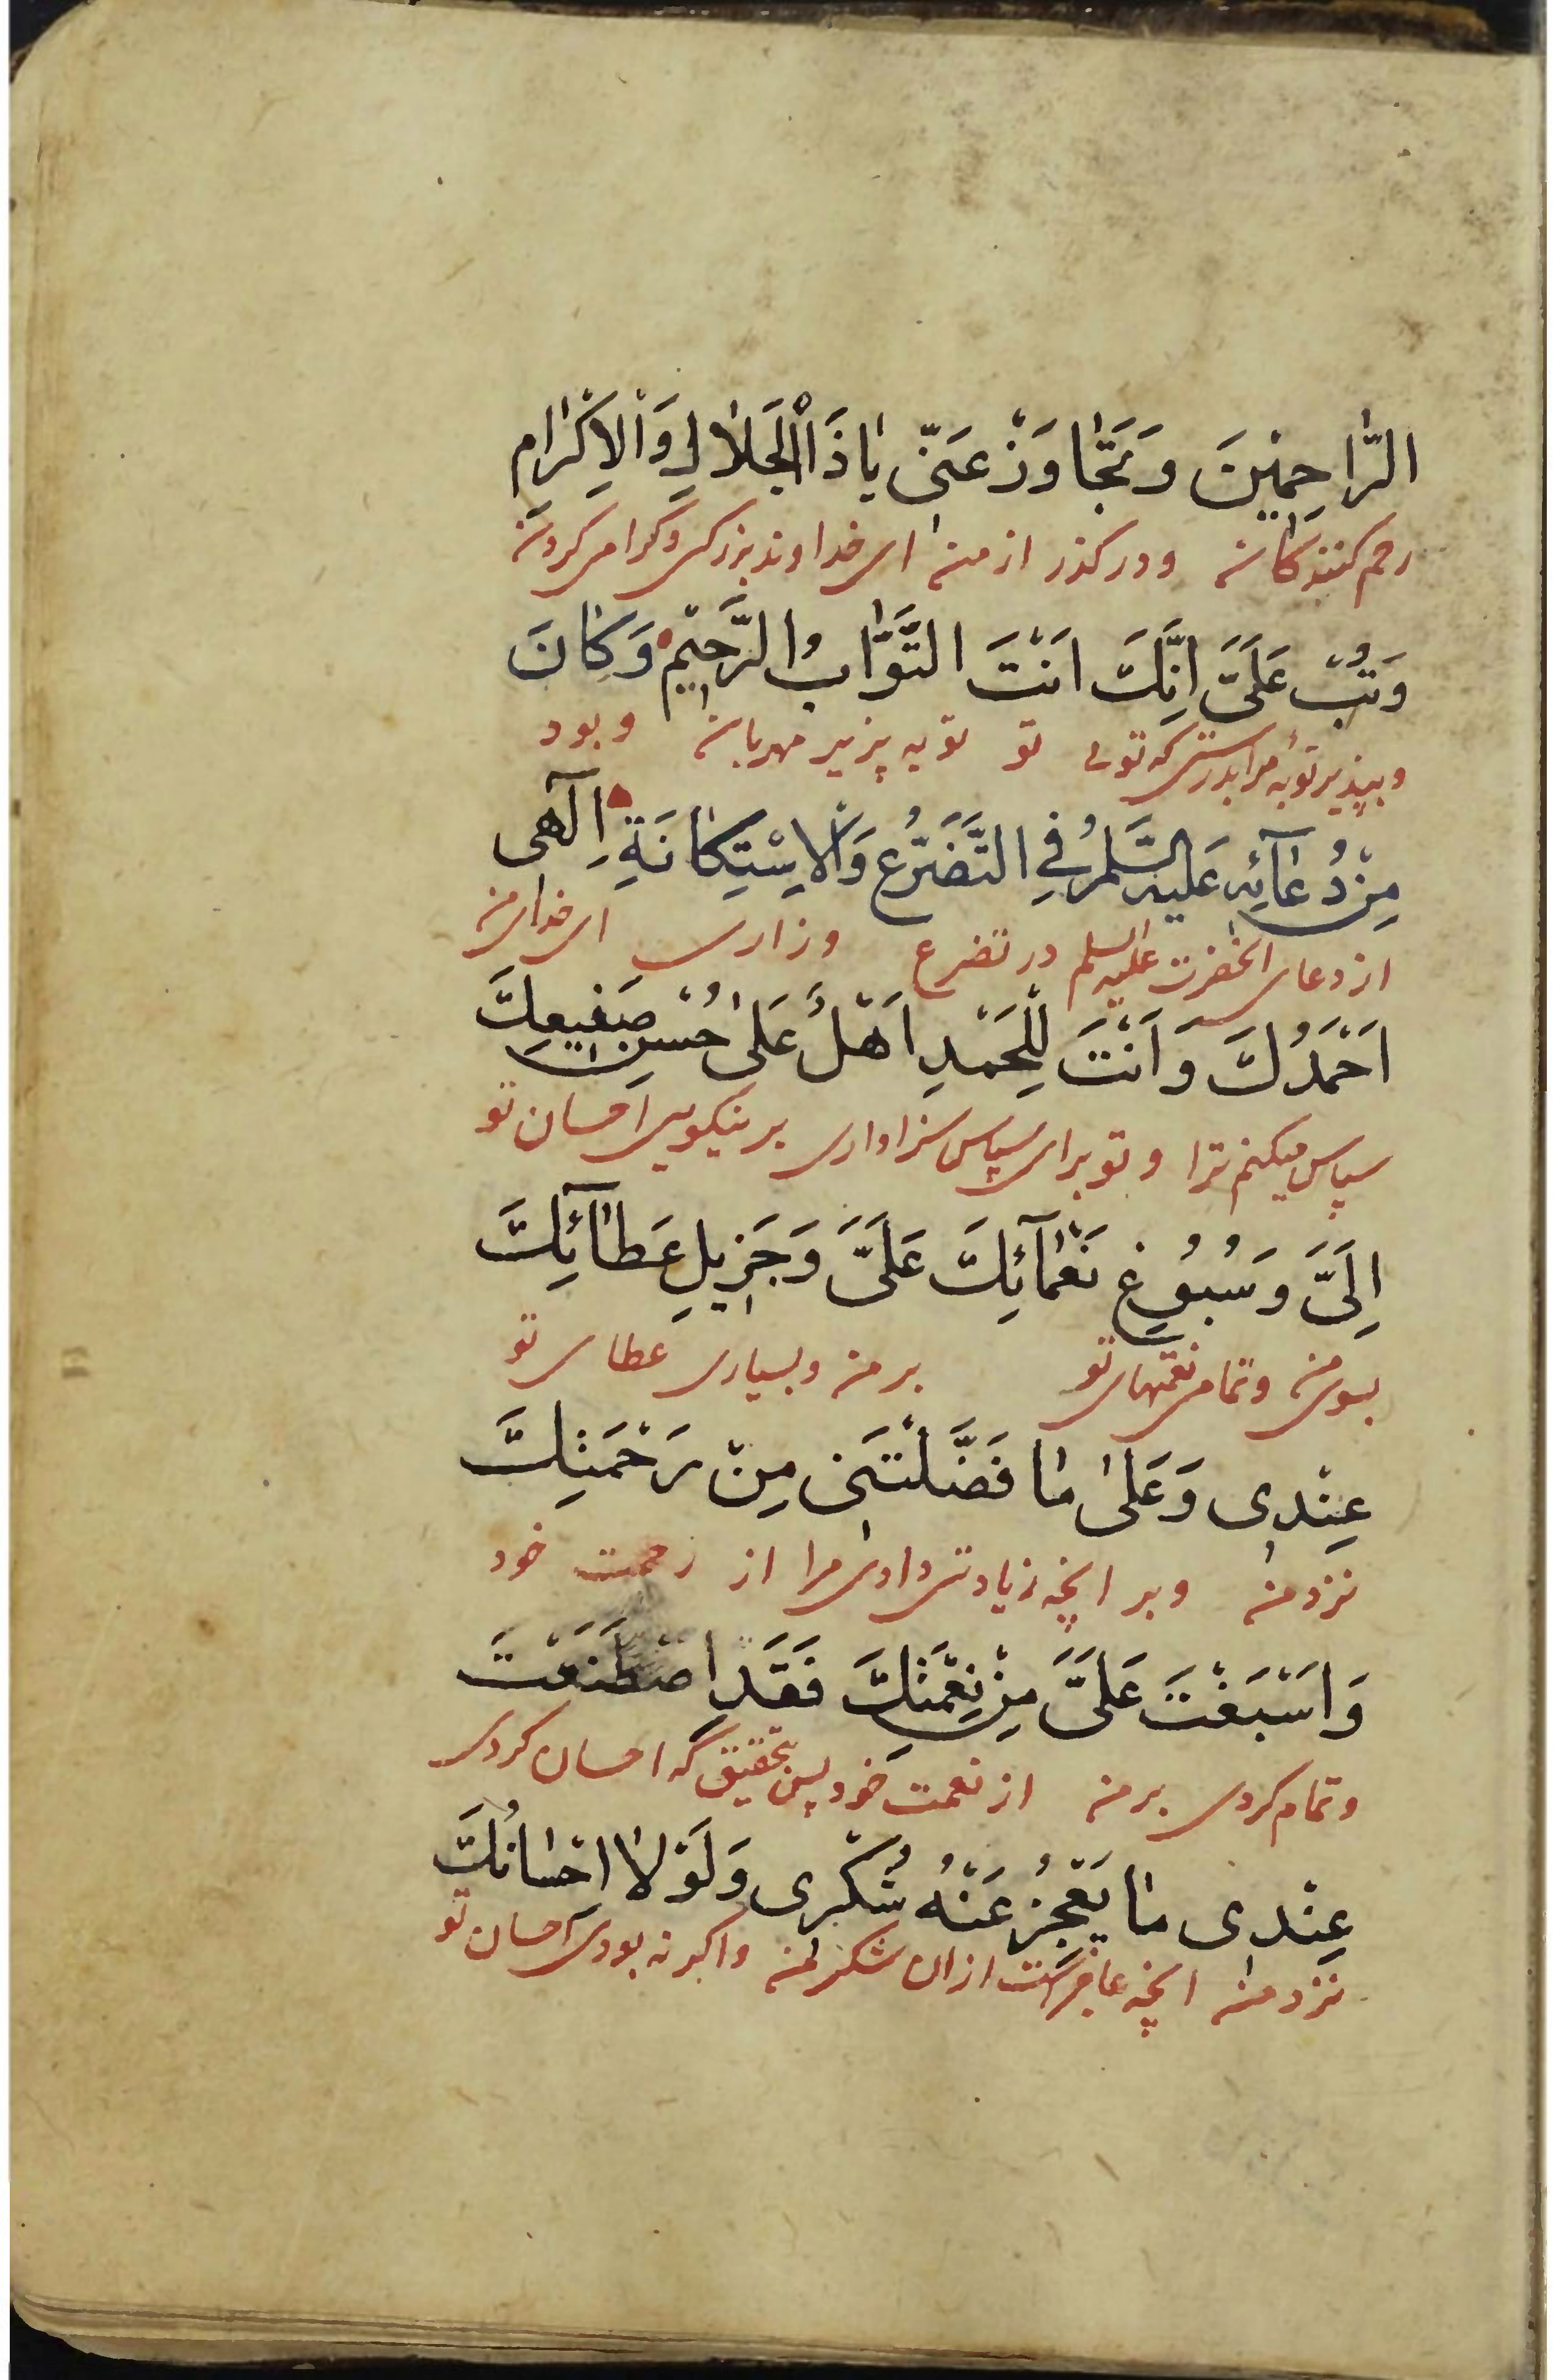 الرّٰاحِمٖينَ وَتَجٰاوَزْ عَنّٖى يٰا ذَا الْجَلٰالِ وَالْاِكْرٰامِ
رحم کنندکان ودرکذر از من ای خداوند بزرکی وکرامی کردن
وَتُبْ عَلَىَّ اِنَّكَ اَنْتَ التَّوّٰابُ الرَّحٖيمُ وَكٰانَ
وبپذیر توبه مرا بدرستی که تویی تو توبه پزیر مهربان وبود
مِنْ دُعٰآئِهٖ عَلَيْهِ السَّلٰمُ فِى التَّضَرُّعِ وَالْاِسْتِكٰانَةِ اِلٰهٖى
از دعای انحضرت علیه السلم در تضرع وزاری ای خدای من
اَحْمَدُكَ وَاَنْتَ لِلْحَمْدِ اَهْلٌ عَلىٰ حُسْنِ صَنٖيعِكَ
سپاس میکنم ترا وتو برای سپاس سزاواری بر نیکویی احسان تو
اِلَىَّ وَسُبُوغِ نَعْمٰآئِكَ عَلَىَّ وَجَزٖيلِ عَطٰآئِكَ
بسوی من وتمامی نعمتهای تو بر من وبسیاری عطای تو
عِنْدٖى وَعَلىٰ مٰا فَضَّلْتَنٖى مِنْ رَحْمَتِكَ
نزد من وبر انچه زیادتی دادی مرا از رحمت خود
وَاَسْبَغْتَ عَلَىَّ مِنْ نِعْمَتِكَ فَقَدِ اصْطَنَعْتَ
وتمام کردی بر من از نعمت خود پس بتحقیق که احسان کردی
عِنْدٖى مٰا يَعْجِزُ عَنْهُ شُكْرٖى وَلَوْلٰا اِحْسٰانُكَ
نزد من انچه عاجز است از ان شکر من واکر نه بودی احسان تو